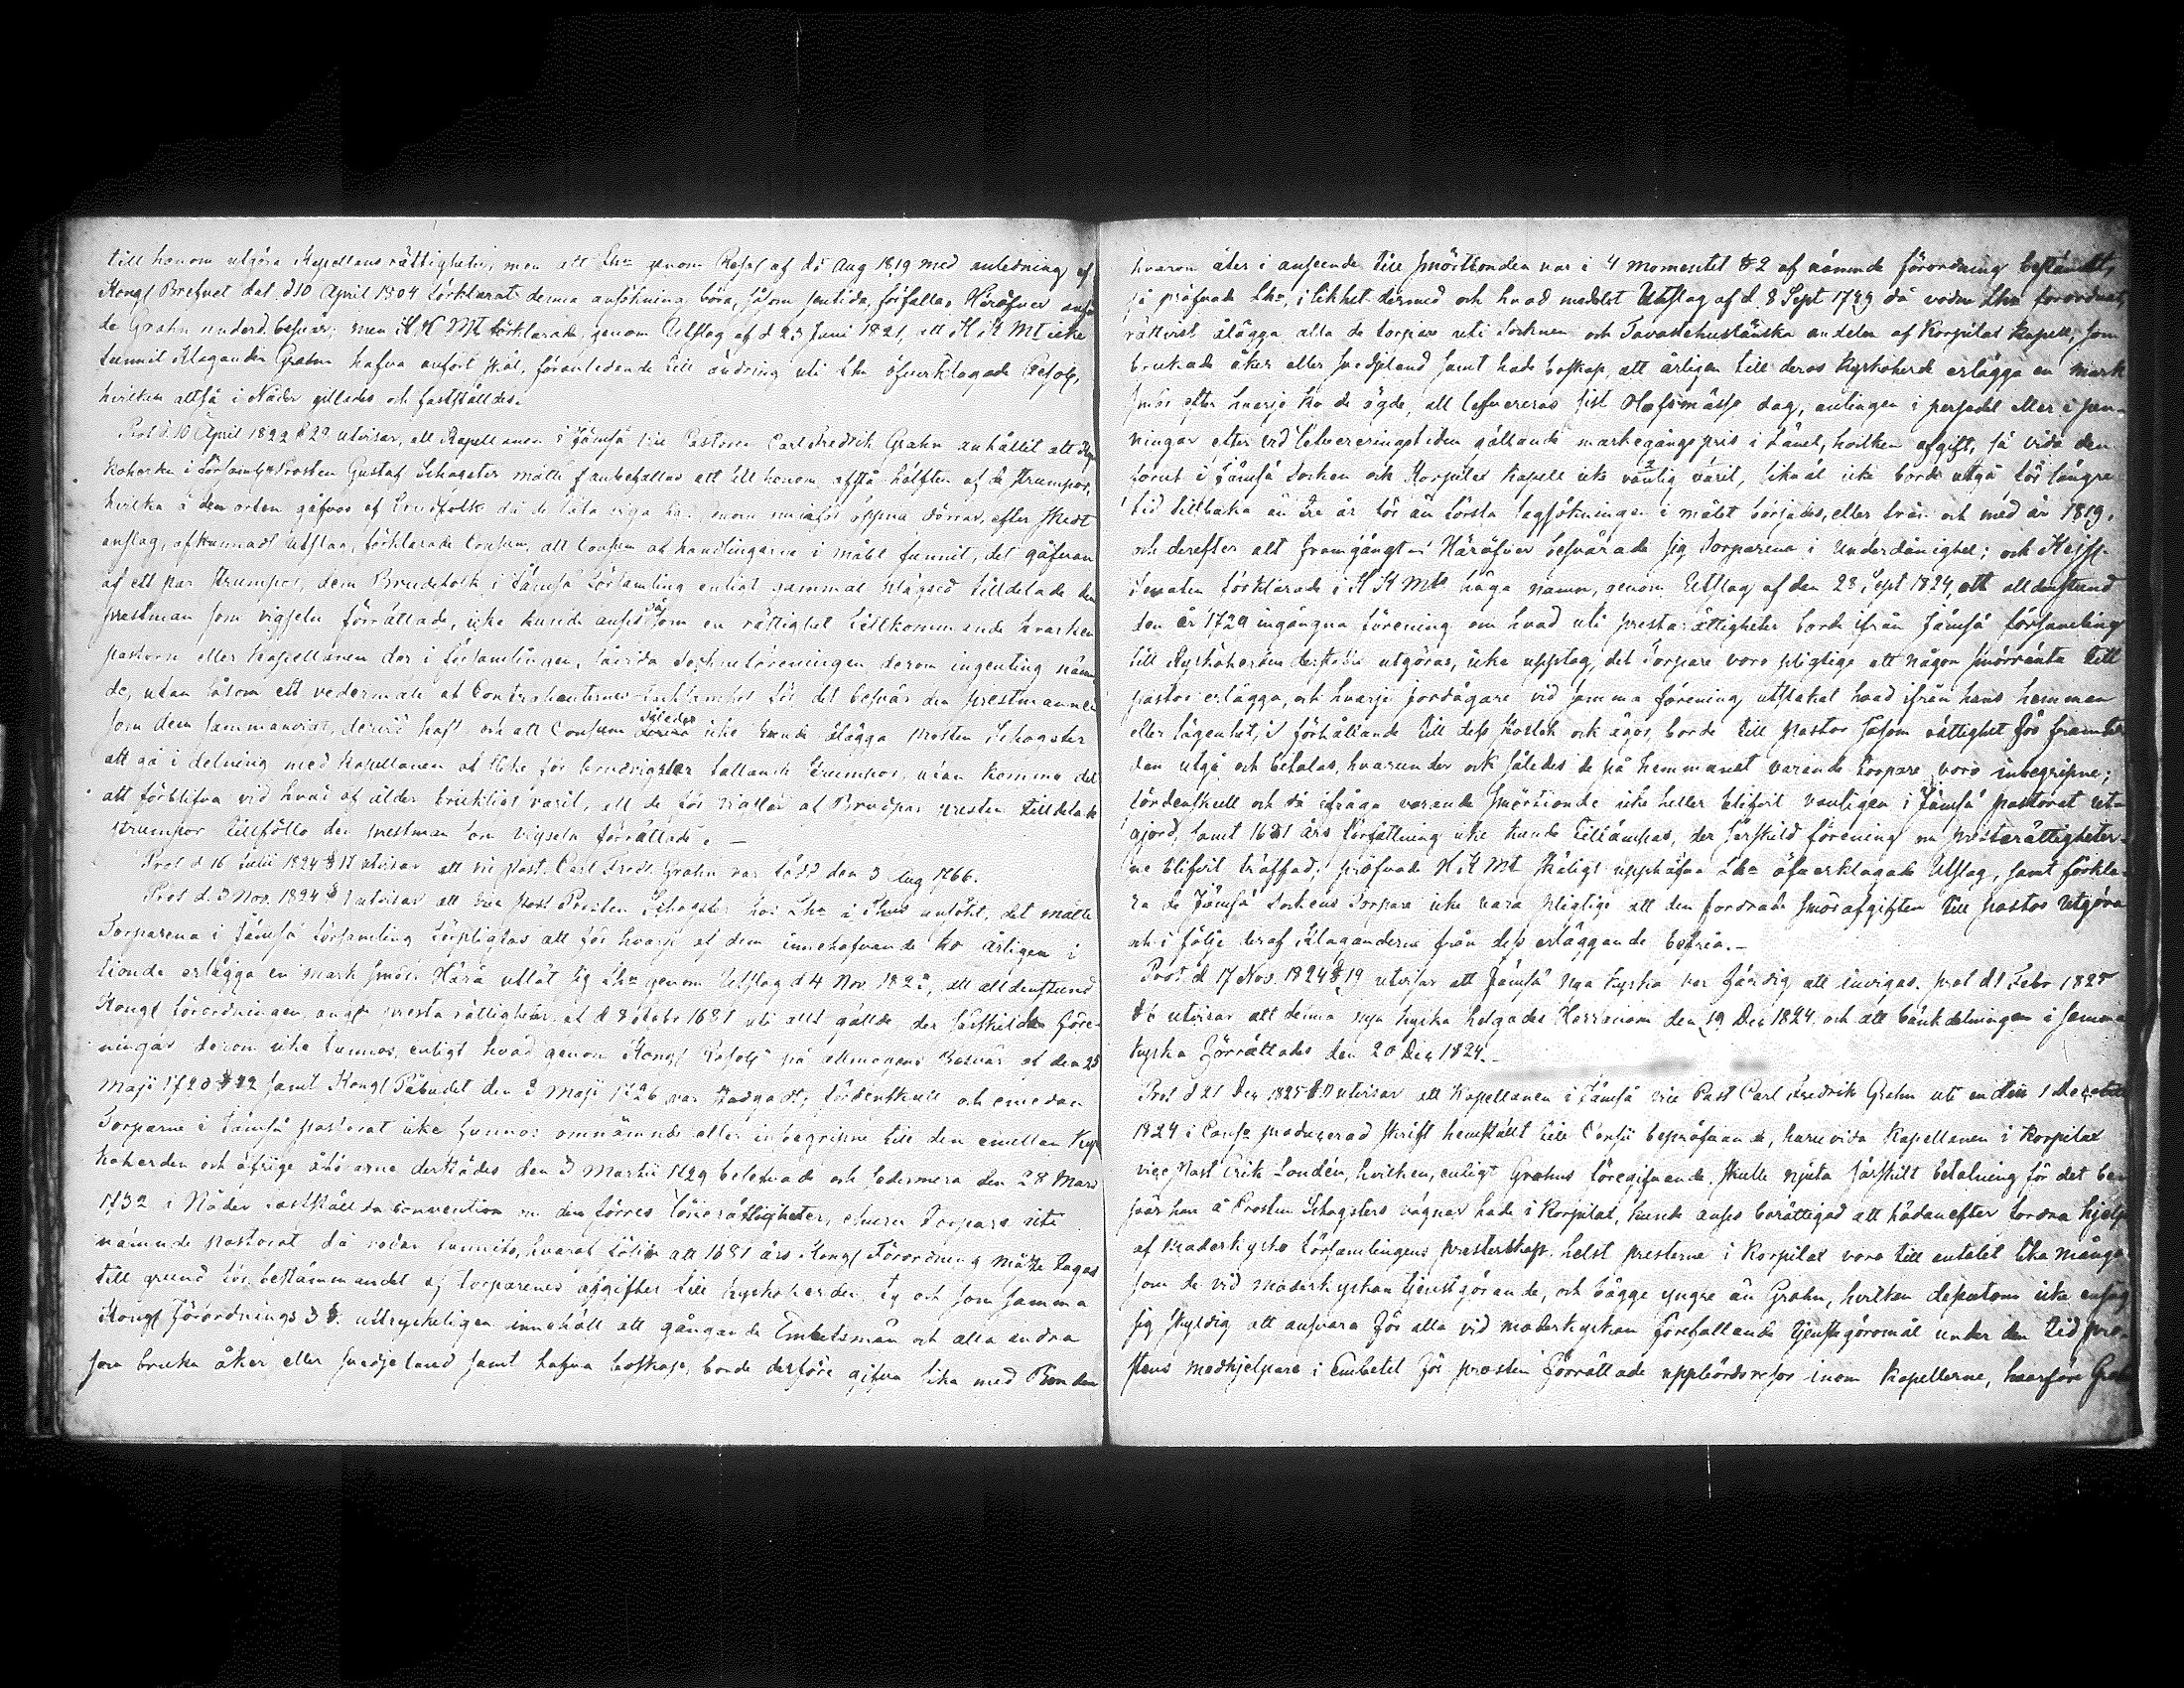 till honom utgöra Kapellans rättigheter, men att Lhn genom Resol af d 5 Aug 1819 med anledning af
Kongl Brefvet dat. d 10 April 1804 förklarat denna ansökning böra, såsom sentida, förfalla. Häröfver anför
de Grahn underd. besvär; men H K Mt förklarade genom Utslag af d 23 Juni 1821, att H K Mt icke
funnit Klaganden Grahn hafva anfört skäl, föranledande till ändring uti Lhns öfverklagade Resol,
hvilken altså i Nåder gillades och fastställdes.
Prot d. 10 April 1822 § 29 utvisar, att Kapellanen i Jämsä vice Pastoren Carl Fredrik Grahn anhållit att Kyr
koherden i församl. Prosten Gustaf Schogster måtte anbefallas att till honom afstå hälften af de strumpor,
hvilka å den orten gåfvos af brudfolk då de låta viga sig inom öppna dörrar, efter skedt
anslag, afkunnadt utslag, förklarade Consm, att Consm af handlingarne i målet funnit, det gåfvan
af ett par strumpor, dem Brudefolk i Jämsä församling enligt gammal plägsed tilldelade den
prestman som vigseln förrättade, icke kunde anses såsom en rättighet tillkommande hvarken
pastorn eller kapellanen der i församlingen, såvida Sockneföreningen derom ingenting nämn
de, utan såsom ett vedermäle af Contrahenternes tacksamhet för det besvär den prestmannen
som dem sammanvigt, dervid haft och att Consm således icke kunde ålägga Prosten Schogster
att gå i delning med kapellanen af slike för brudvigslar fallande strumpor, utan komme det
att förblifva vid hvad af ålder brukligt varit, att de för vigslar af Brudpar presten tilldelade
strumpor tillfölle den prestman som vigseln förrättade. —
Prot d 16 Julii 1824 § 17 utvisar att vic past. Carl Fredr. Grahn var född den 3 Aug 1766.
Prot d. 3 Nov. 1824 § 1 utvisar att Prosten Schogster hos Lhn i Thus ansökt, det måtte
Torparena i Jämsä församling förpligtas att för hvarje af dem innehafvande ko årligen i
tionde erlägga en mark smör. Härå utlät sig Lhn genom Utslag d 4 Nov. 1822, att alldenstund
Kongl förordningen, angde prestarättigheter, af d 8 Octobr 1681 uti allt gällde, der särskilda före-
ningar derom icke funnos, enligt hvad genom Kongl Resol på allmogens Besvär af den 25
Maji 1720 § 22 samt Kongl Påbudet den 3 Maji 1726 var stadgadt, fördenskull och emedan
Torparne i Jämsä pastorat icke funnos omnämnde eller inbegripne till den emellan Kyr
koherden och öfrige åboarne derstädes den 3 Martii 1729 beledvade och sedermera den 28 Mars
1732 i Nåder fastställda convention om den förres lönerättigheter, ehuru Torpare uti
nämnde pastorat då redan funnits, hvaraf följde att 1681 års Kongl Förordning måtte tagas
till grund för bestämmandet af torparenes afgifter till kyrkoherden, ty och som samma
Kongl Förordnings 3 §. uttryckeligen innehöll att gångande Embetsmän och alla andra
som bruka åker eller svedjeland samt hafva boskap, borde derföre gifva lika med Bonden
hvaron åter i anseende till smörtionden var i 4 momentet § 2 af nämnde förordning bestämdt,
så pröfvade Lhn, i likhet dermed och hvad medelst Utslag af d. 8 Sept 1789 då vore Lhn förordnat,
rättvist ålägga alla de torpare uti Socknen och Tavastehusländska andelen af Korpilax Kapell, som
brukade åker eller svedjeland samt hade boskap, att årligen till deras Kyrkoherde erlägga en mark
smör efter hvarje ko de ägde, att lefvereras sist Olofsmässo dag, antingen i persedel eller i pen-
ningar efter vid lefvereringstiden gällande markegångspris i Länet, hvilken afgift, så vida den
förut i Jämsä Socken och Korpilax Kapell icke vanlig varit, likväl icke borde utgå för längre
tid tillbaka än tre år för än första lagsökningen i målet börjades, eller från och med år 1819,
och derefter alt framgångt. Häröfver besvärade sig Torparena i Underdånighet; och Kejserl.
Senaten förklarade i H K Mts höga namn, genom Utslag af den 28 Sept 1824, att alldenstund
den år 1729 ingångna förening om hvad uti prestarättigheter borde ifrån Jämsä församling
till Kyrkoherden derstädes utgöras, icke upptog, det Torpare voro pligtige att någon smörränta till
pastor erlägga, och hvarje jordägare vid samma förening utstakat hvad ifrån hans hemman
eller lägenhet, i förhållande till dess storlek och ägor, borde till pastor såsom rättighet för framti
den utgå och betalas, hvarunder ock således de på hemmanet varande torpare voro inbegripne;
fördenskull och då ifråga varande smörtionde icke heller blifvit vanligen i Jämsä pastorat ut-
gjord, samt 1681 års författning icke kunde tillämpas, der särskild förening om prestarättigheter-
ne blifvit träffad, pröfvade H K Mt skäligt upphäfva Lhns öfverklagade Utslag, samt förkla-
ra de Jämsä Sockens torpare icke vara pligtige att den fordrade smörafgiften till pastor utgöra
och i följe deraf Klaganderne från dess erläggande befria.—
Prot d 17 Nov. 1824 § 19 utvisar att Jämsä nya kyrka var färdig att invigas. prot d 1 Febr 1825
§ 6 utvisar att denna nya kyrka helgades Herranom den 19 Dec 1824, och att bänkdelningen i samma
kyrka förrättades den 20 Dec 1824.—
Prot d 21 Dec 1825 § 17 utvisar att Kapellanen i Jämsä vice Past Carl Fredrik Grahn uti en den 1 Dec
1824 i Consm producerad skrift hemställt till Consii bepröfvande, huruvida Kapellanen i Korpilax
vice Past Erik Londén, hvilken, enligt Grahns föregifvande, skulle njuta särskilt betalning för det be-
svär han å Prosten Schogsters vägnar hade i Korpilax, kunde anses berättigad att hädanefter fordra hjelp
af Moderkyrko församlingens presterskap, helst presterne i Korpilax voro till antalet lika många
som de vid moderkyrkan tjenstgörande, och bägge yngre än Grahn, hvilken dessutom icke ansåg
sig skyldig att ansvara för alla vid moderkyrkan förefallande tjenstgöromål under den tid pro-
stens medhjelpare i Embetet för prosten förrättade uppbördsresor inom Kapellerne, hvarföre Grahn